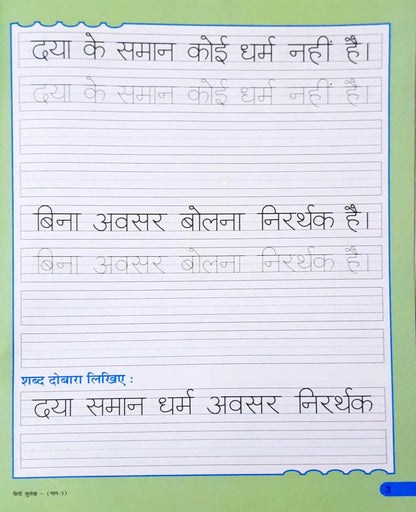 दया के समान कोई धर्म नहीं है।
दया के समान कोई धर्म नहीं है।
बिना अवसर बोलना निरर्थक है।
बिना अवसर बोलना निरर्थक है।
शब्द दोबारा लिखिए :
दया समान धर्म अवसर निरर्थक
हिंदी सुलेख – (भाग-5)
3